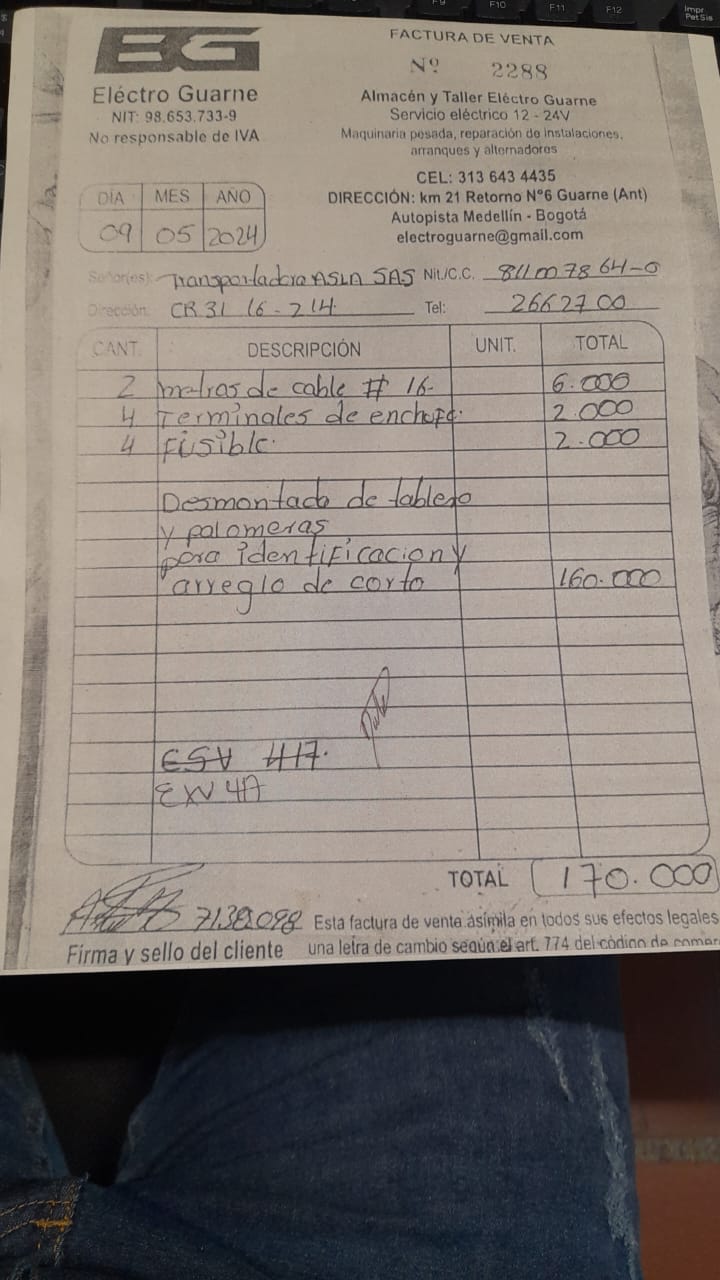 F9 F10 F11 F12 Impr PetSis
EG
Eléctro Guarne
NIT: 98.653.733-9
No responsable de IVA
FACTURA DE VENTA
Nº 2288
Almacén y Taller Eléctro Guarne
Servicio eléctrico 12 - 24V
Maquinaria pesada, reparación de instalaciones,
arranques y alternadores
CEL: 313 643 4435
DIRECCIÓN: km 21 Retorno N°6 Guarne (Ant)
Autopista Medellín - Bogotá
electroguarne@gmail.com
DÍA MES AÑO
09 05 2024
Señor(es): Transportadora ASLA SAS Nit./C.C. 811007864-0
Dirección: CR 31 16-214 Tel: 2662700
CANT. DESCRIPCIÓN UNIT. TOTAL
2 metros de cable # 16. 6.000
4 Terminales de enchufe. 2.000
4 Fusible. 2.000
Desmontada de tablero
y palomeras
para identificacion y
arreglo de corto 160.000
ESV 417.
TOTAL 170.000
Esta factura de venta asimila en todos sus efectos legales
Firma y sello del cliente una letra de cambio según el art. 774 del código de comer